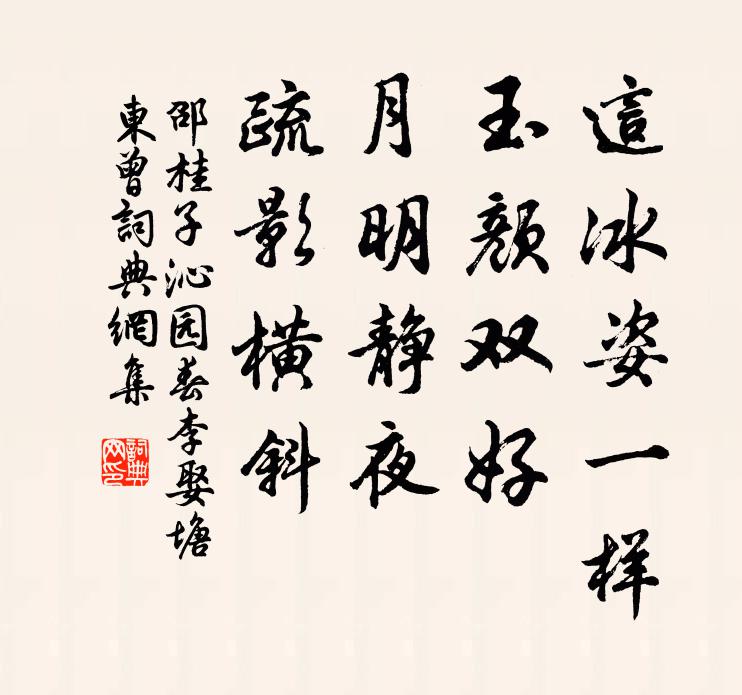 這冰姿一样
玉颜双好
月明靜夜
疏影橫斜
邵桂子沁园春李娶塘
東曾詞典網集
詞典網印